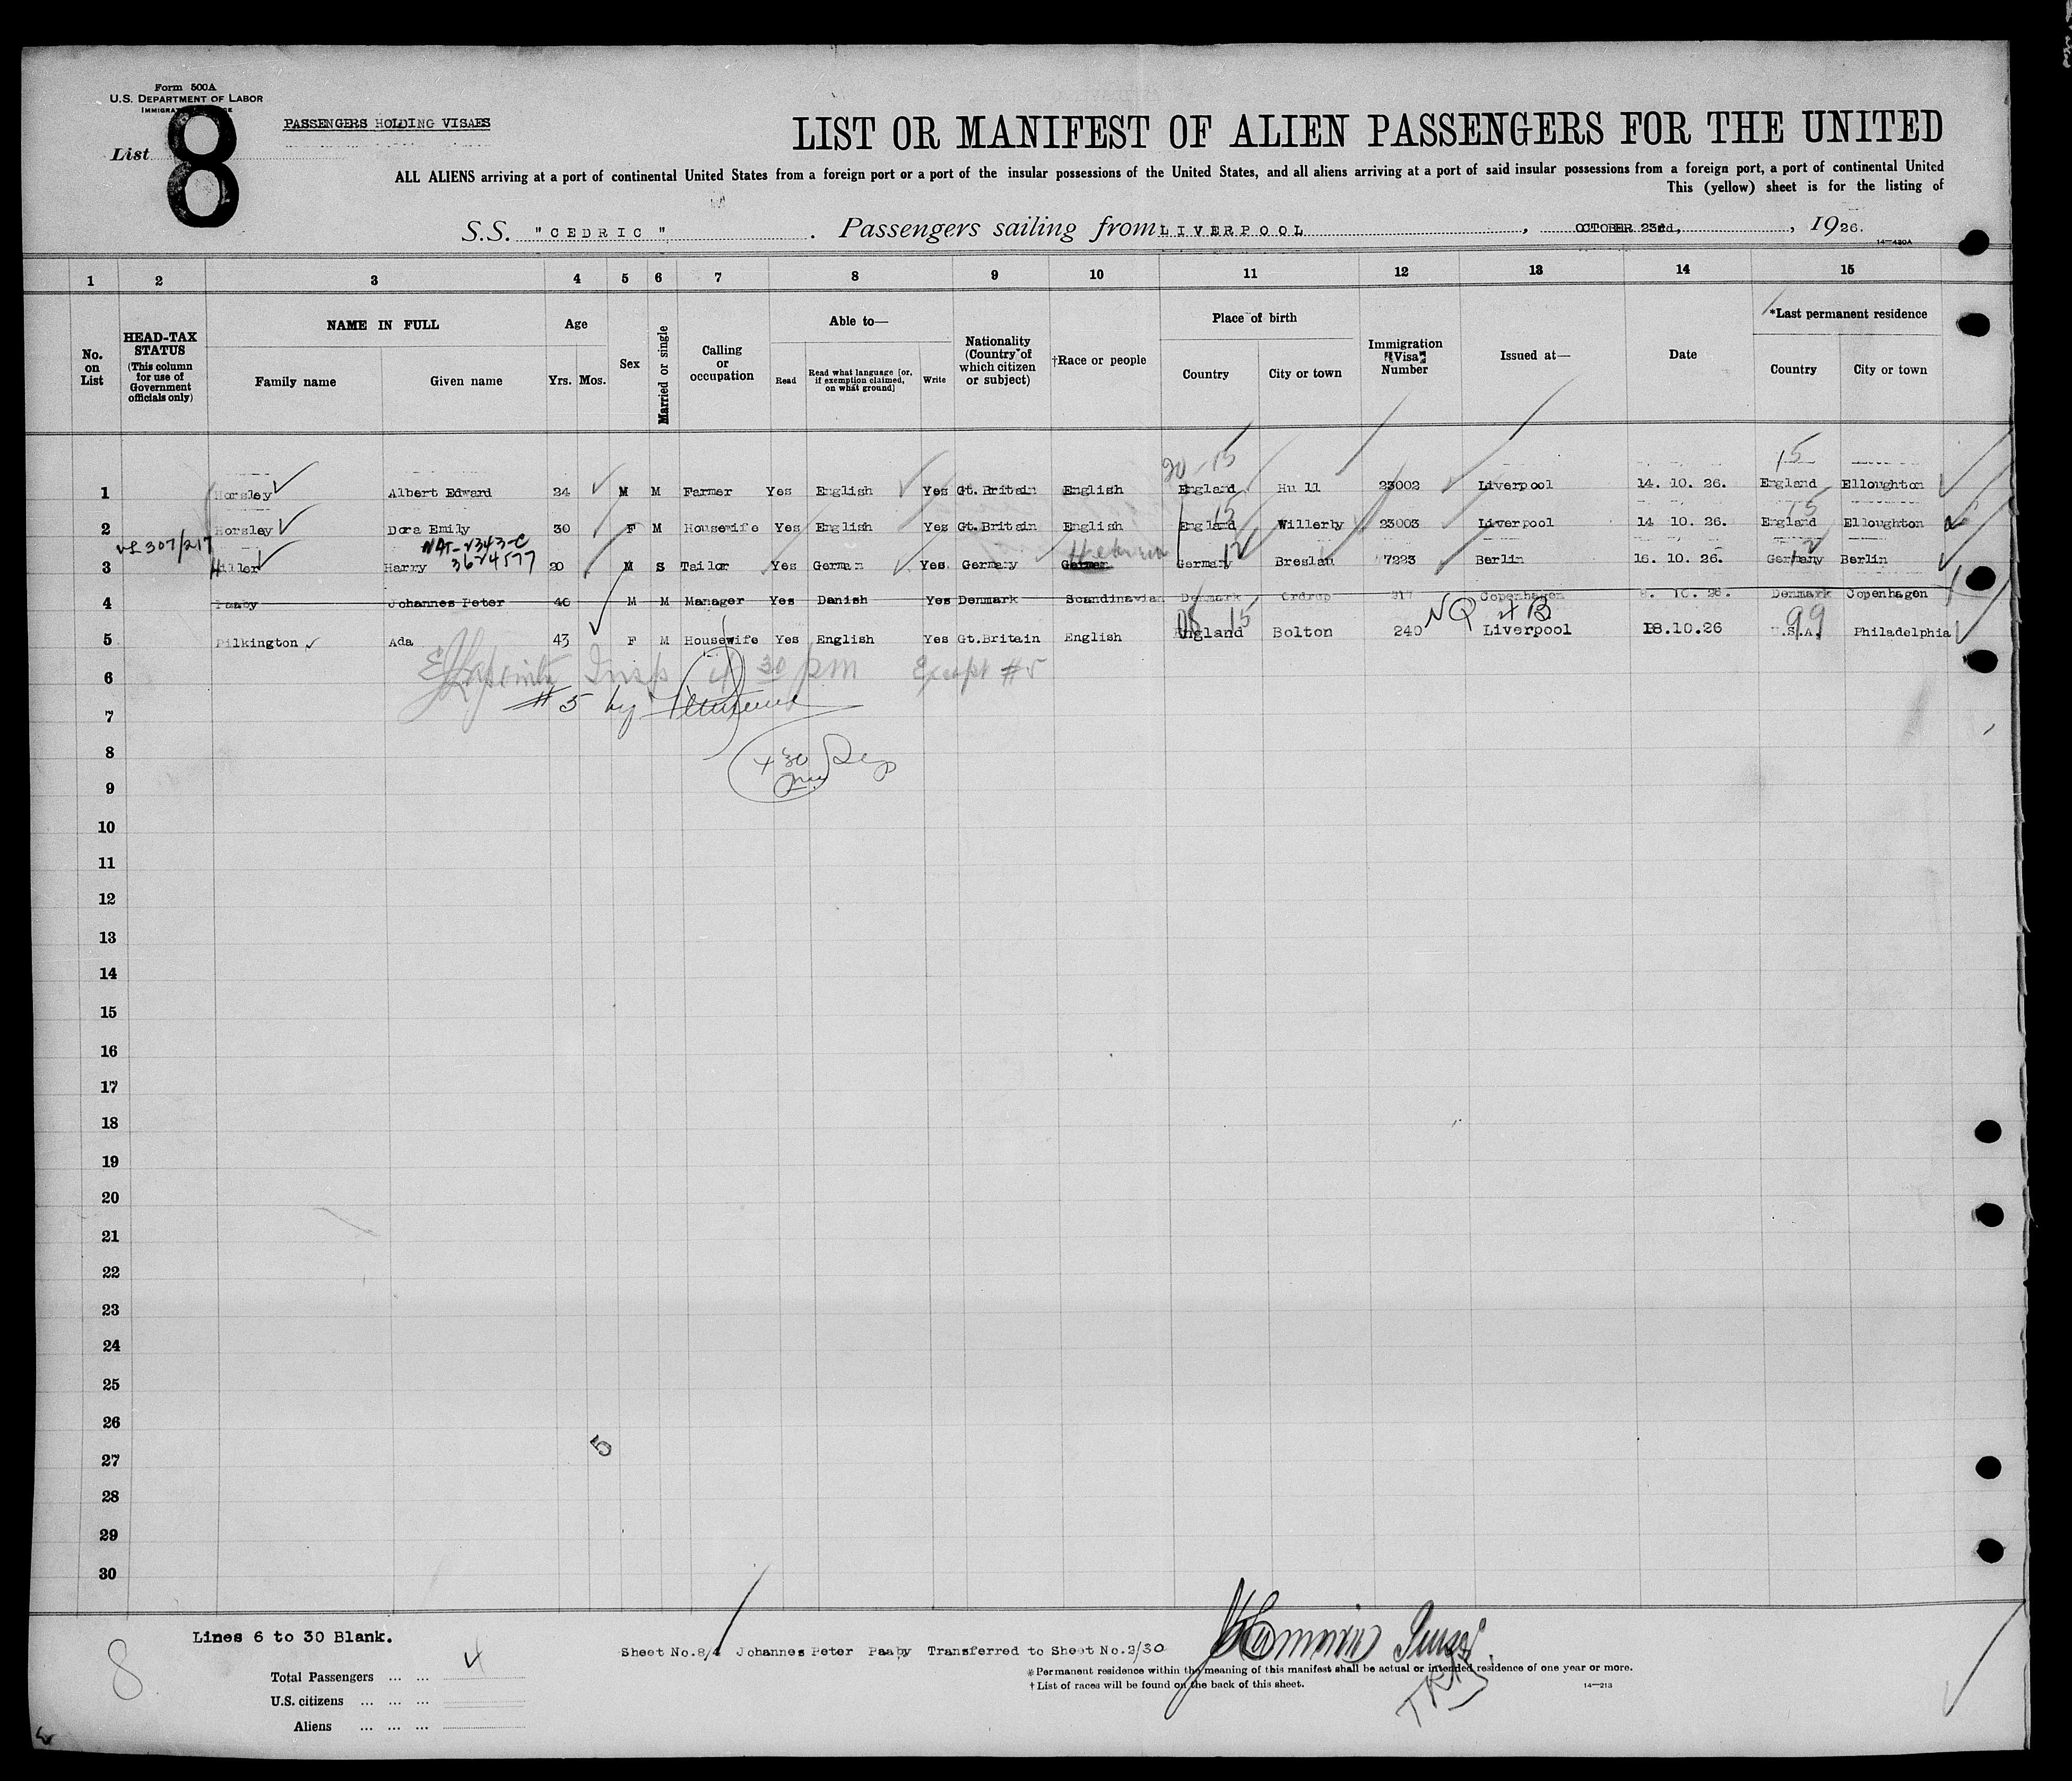 Form 500A
U.S. DEPARTMENT OF LABOR
PASSENGERS HOLDING VISAES
List 8
LIST OR MANIFEST OF ALIEN PASSENGERS FOR THE UNITED
ALL ALIENS arriving at a port of continental United States from a foreign port or a port of the insular possessions of the United States, and all aliens arriving at a port of said insular possessions from a foreign port, a port of continental United
This (yellow) sheet is for the listing of
S.S. "CEDRIC". Passengers sailing from LIVERPOOL, OCTOBER 23rd, 1926.
14—430A
1 2 3 4 5 6 7 8 9 10 11 12 13 14 15
No. on List
HEAD-TAX STATUS (This column for use of Government officials only)
NAME IN FULL
Family name Given name
Age
Yrs. Mos.
Sex
Married or single
Calling or occupation
Able to—
Read Read what language [or, if exemption claimed, on what ground] Write
Nationality (Country of which citizen or subject)
†Race or people
Place of birth
Country City or town
Immigration Visa Number
Issued at—
Date
*Last permanent residence
Country City or town
20 15 15
1 Horsley Albert Edward 24 M M Farmer Yes English Yes Gt.Britain English England Hull 23002 Liverpool 14. 10. 26. England Elloughton
15 15
2 Horsley Dora Emily 30 F M Housewife Yes English Yes Gt.Britain English England Willerby 23003 Liverpool 14 10. 26. England Elloughton
307/217 NAT-2343-C 3624577 Hebrew 12 12
3 Hiller Harry 20 M S Tailor Yes German Yes Germany German Germany Breslau 7223 Berlin 16. 10. 26. Germany Berlin
4 Paaby Johannes Peter 46 M M Manager Yes Danish Yes Denmark Scandinavian Denmark Ordrup 317 Copenhagen 10. 26. Denmark Copenhagen
15 NQ 4 B 99
5 Pilkington Ada 43 F M Housewife Yes English Yes Gt.Britain English England Bolton 240 Liverpool 18.10.26 U.S.A. Philadelphia
6 Insp 4 30 pm Except #5
7 #5 by
8 4 30
9
10
11
12
13
14
15
16
17
18
19
20
21
22
23
24
25
26
27 5
28
29
30
Lines 6 to 30 Blank.
Sheet No.8/4 Johannes Peter Paaby Transferred to Sheet No.2/30
8
Total Passengers ... ... 4
U.S. citizens ... ... ...
Aliens ... ... ...
* Permanent residence within the meaning of this manifest shall be actual or intended residence of one year or more.
† List of races will be found on the back of this sheet.
14—213